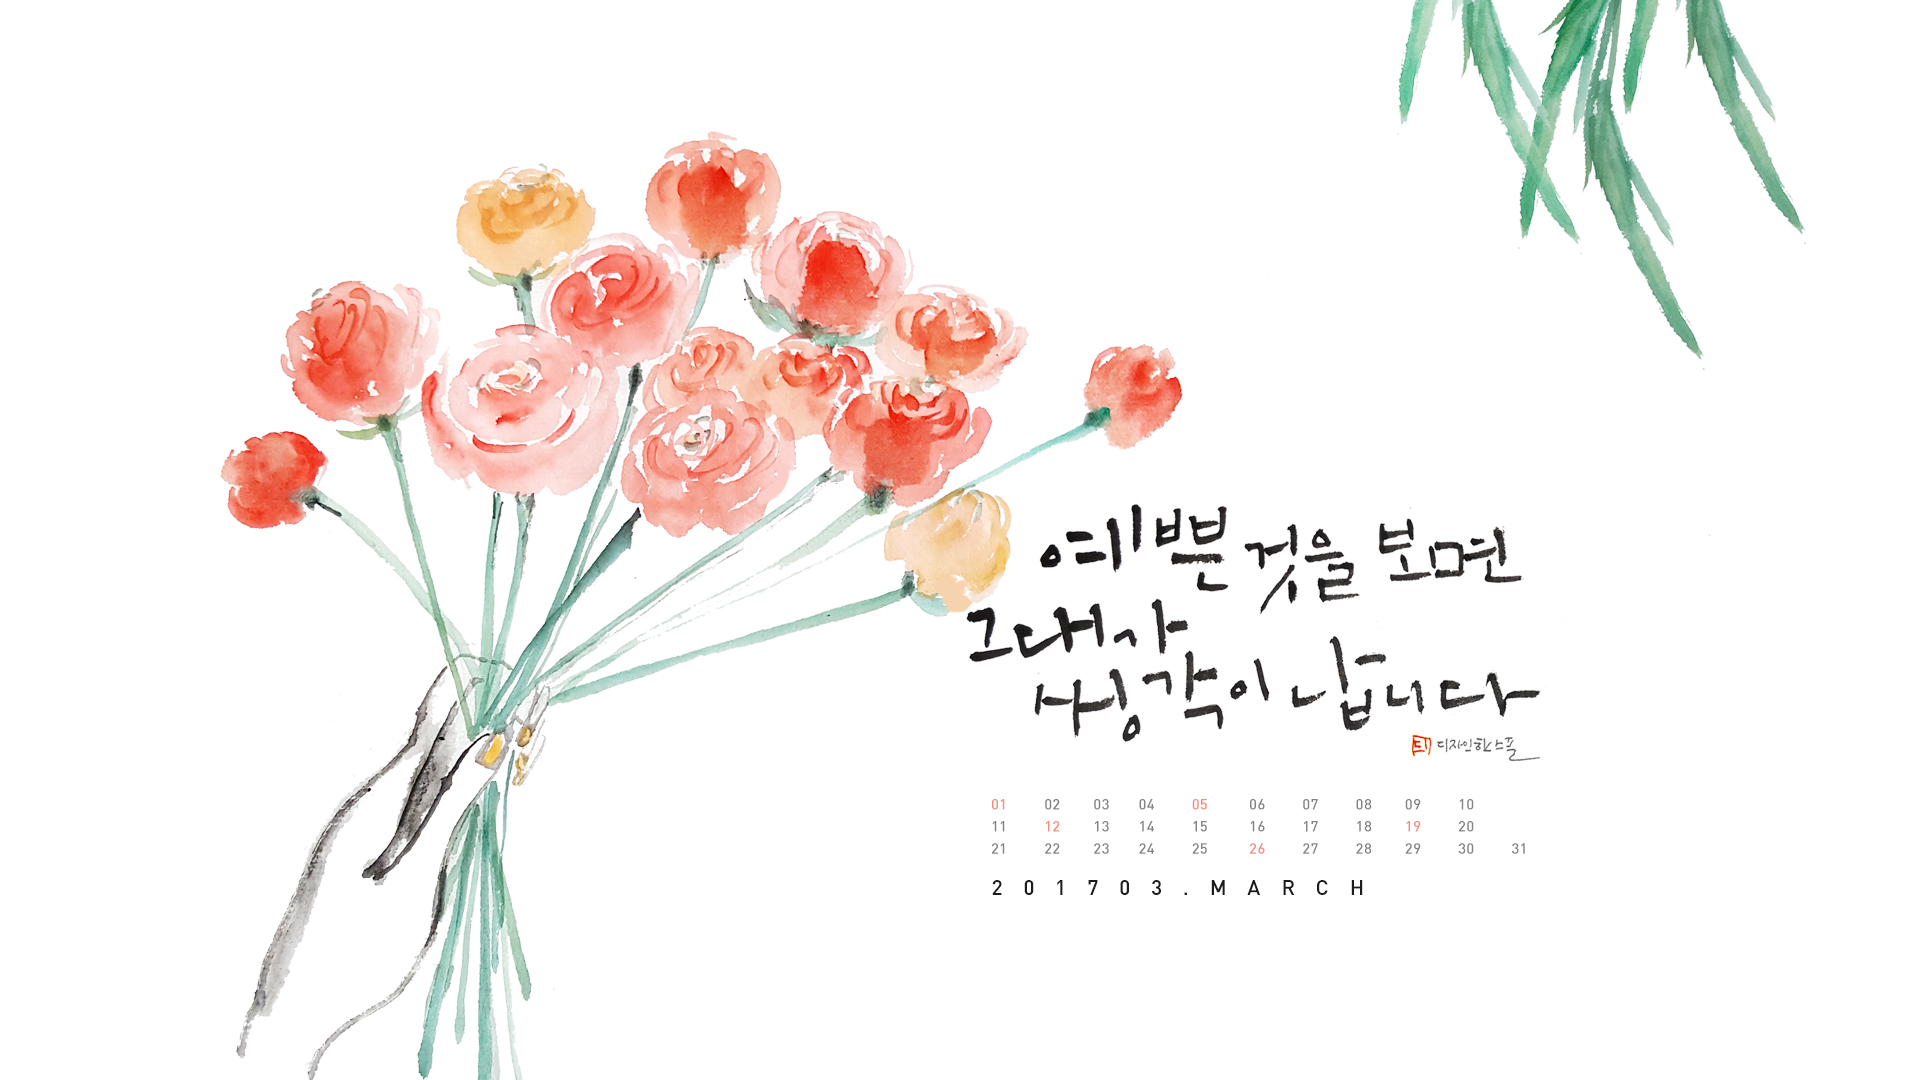 예쁜 것을 보면
그대가
생각이 납니다
디자인한스푼
01 02 03 04 05 06 07 08 09 10
11 12 13 14 15 16 17 18 19 20
21 22 23 24 25 26 27 28 29 30 31
201703.MARCH